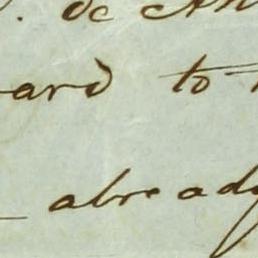 . de An
ard to
already